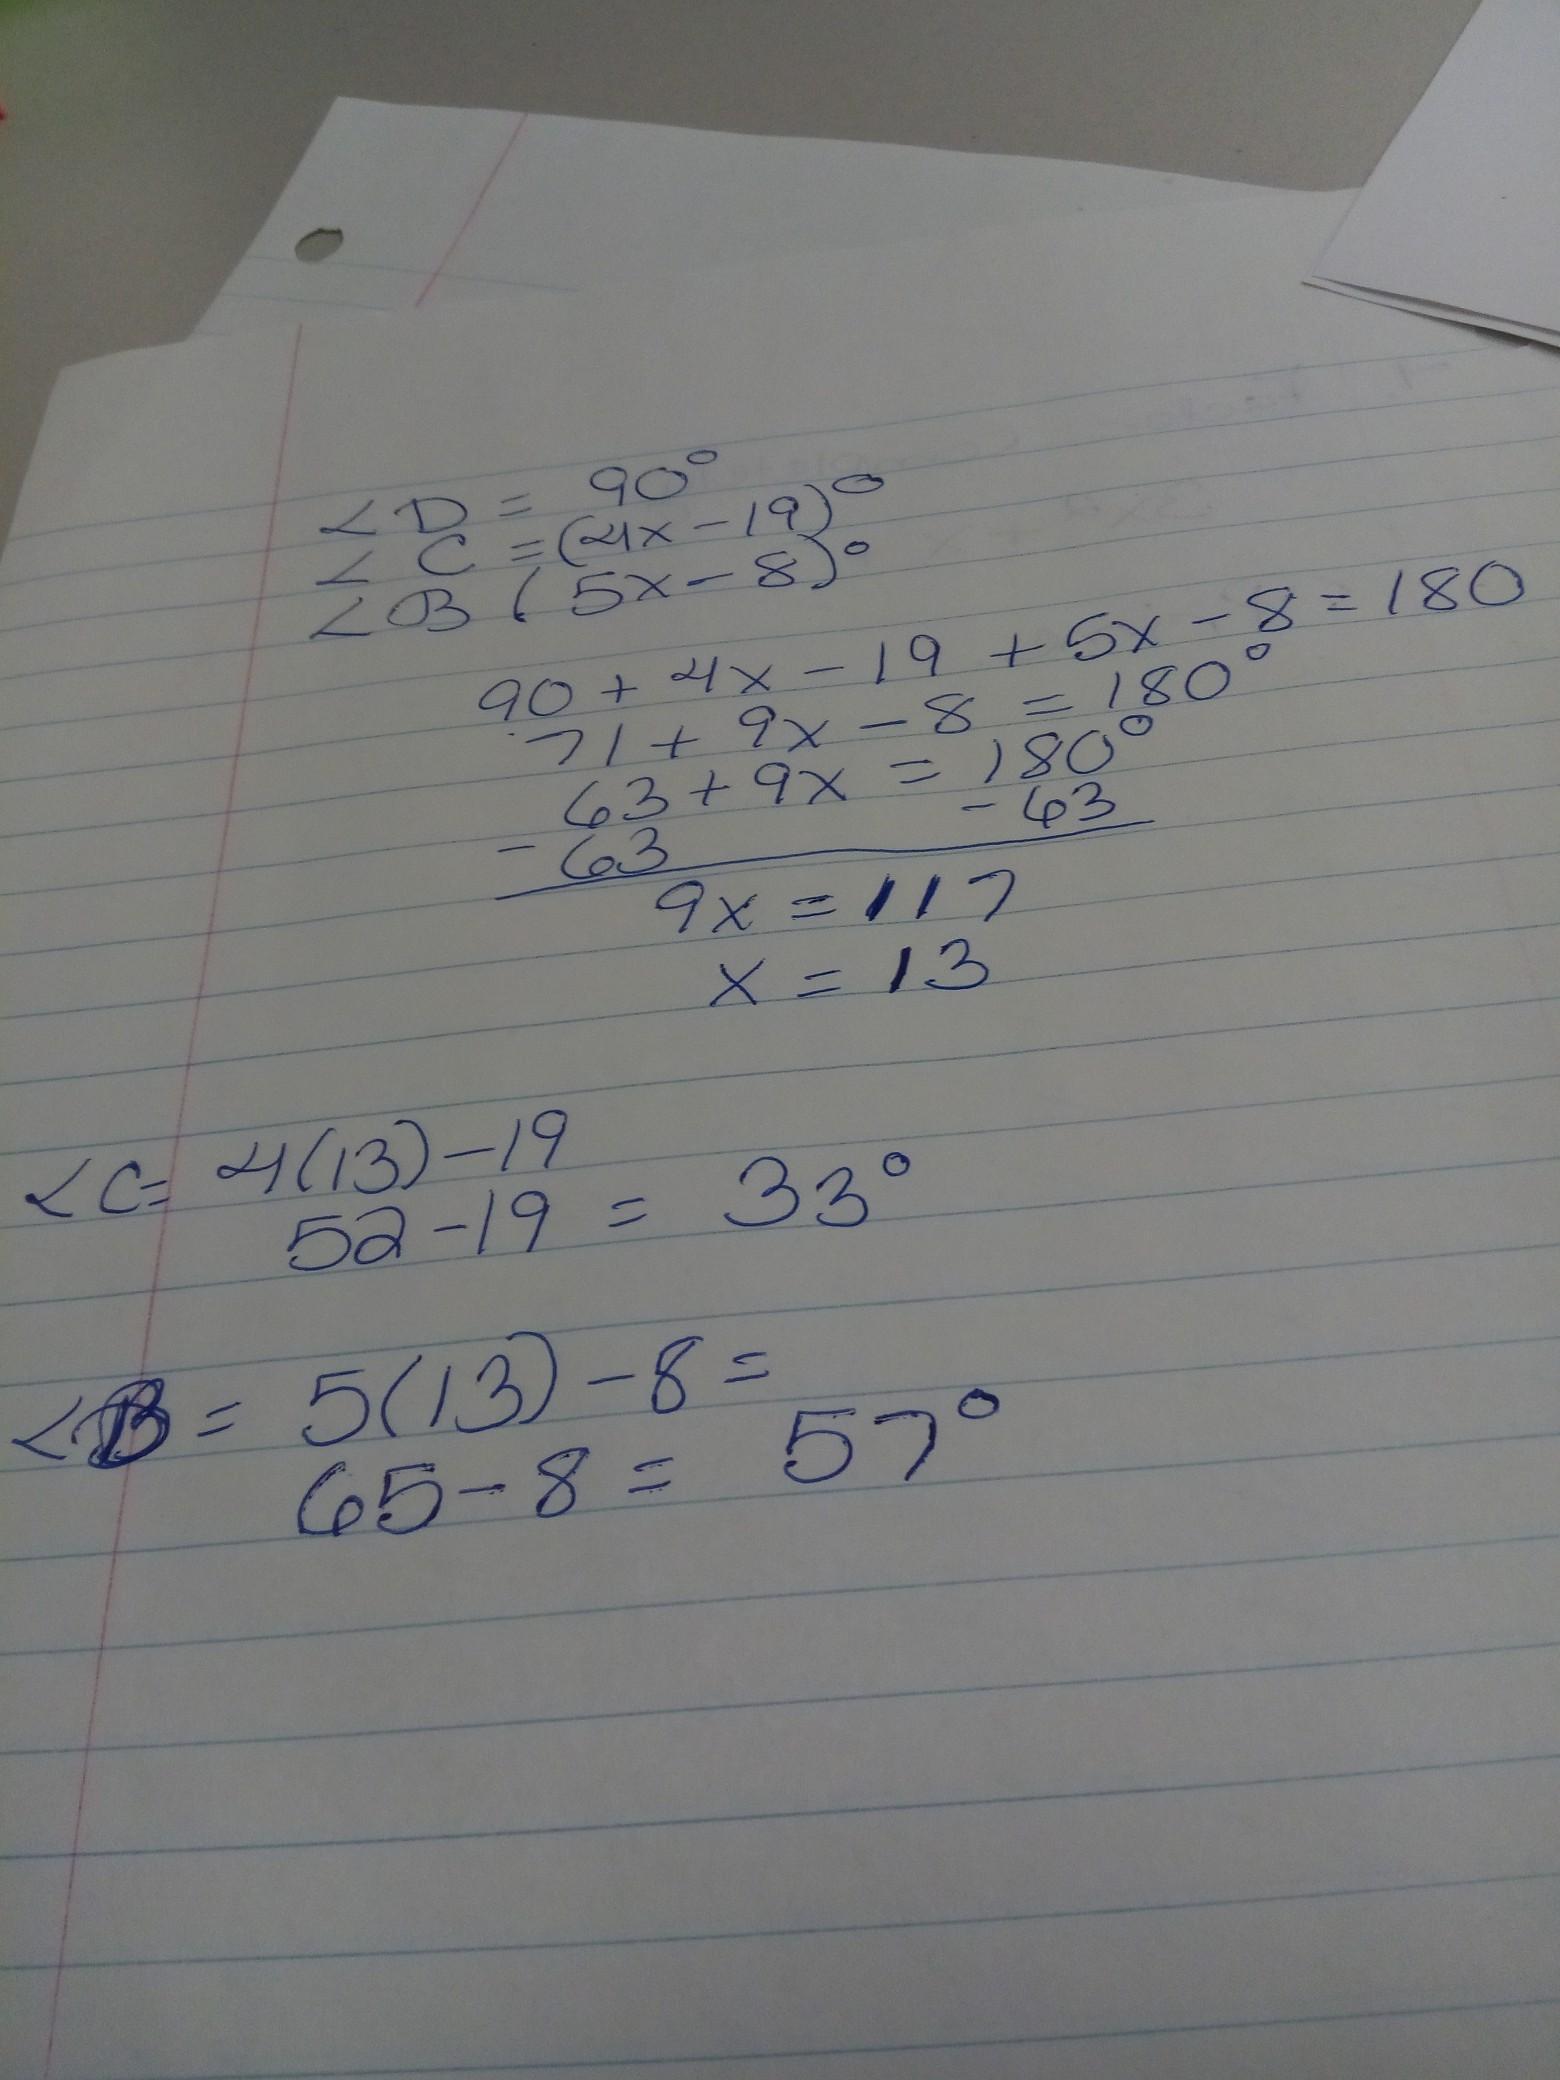 ∠D = 90°
∠C = (4x - 19)°
∠B (5x - 8)°
90 + 4x - 19 + 5x - 8 = 180
71 + 9x - 8 = 180°
63 + 9x = 180°
- 63 - 63
9x = 117
x = 13
∠C = 4(13) - 19
52 - 19 = 33°
∠B = 5(13) - 8 =
65 - 8 = 57°